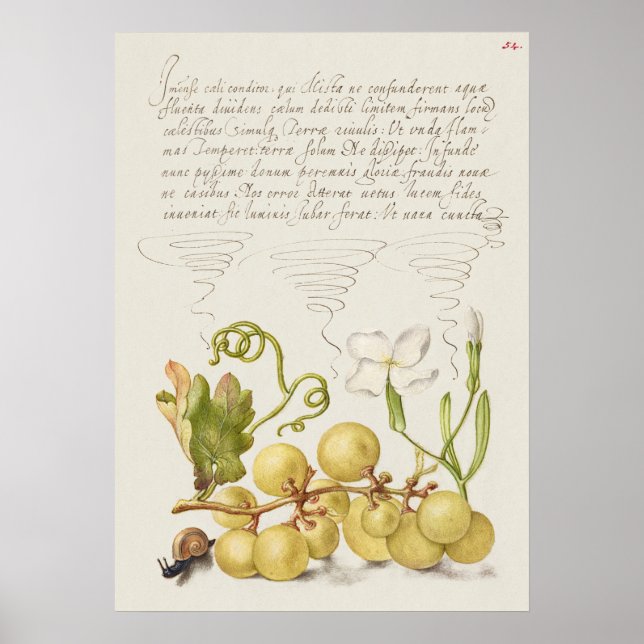 54.
Imense cæli conditor, qui Mista ne confunderent aquæ
fluenta diuidens cælum dedisti limitem firmans locū
cælestibus Simulq Terræ riuulis: Ut unda flam⸗
mas Temperet: terræ solum Ne dissipet: Infunde
nunc pyssime donum perennis gloriæ fraudis nouæ
ne casibus Nos error Atterat uetus lutem fides
inueniat sic luminis Iubar ferat: Ut uana cuncta